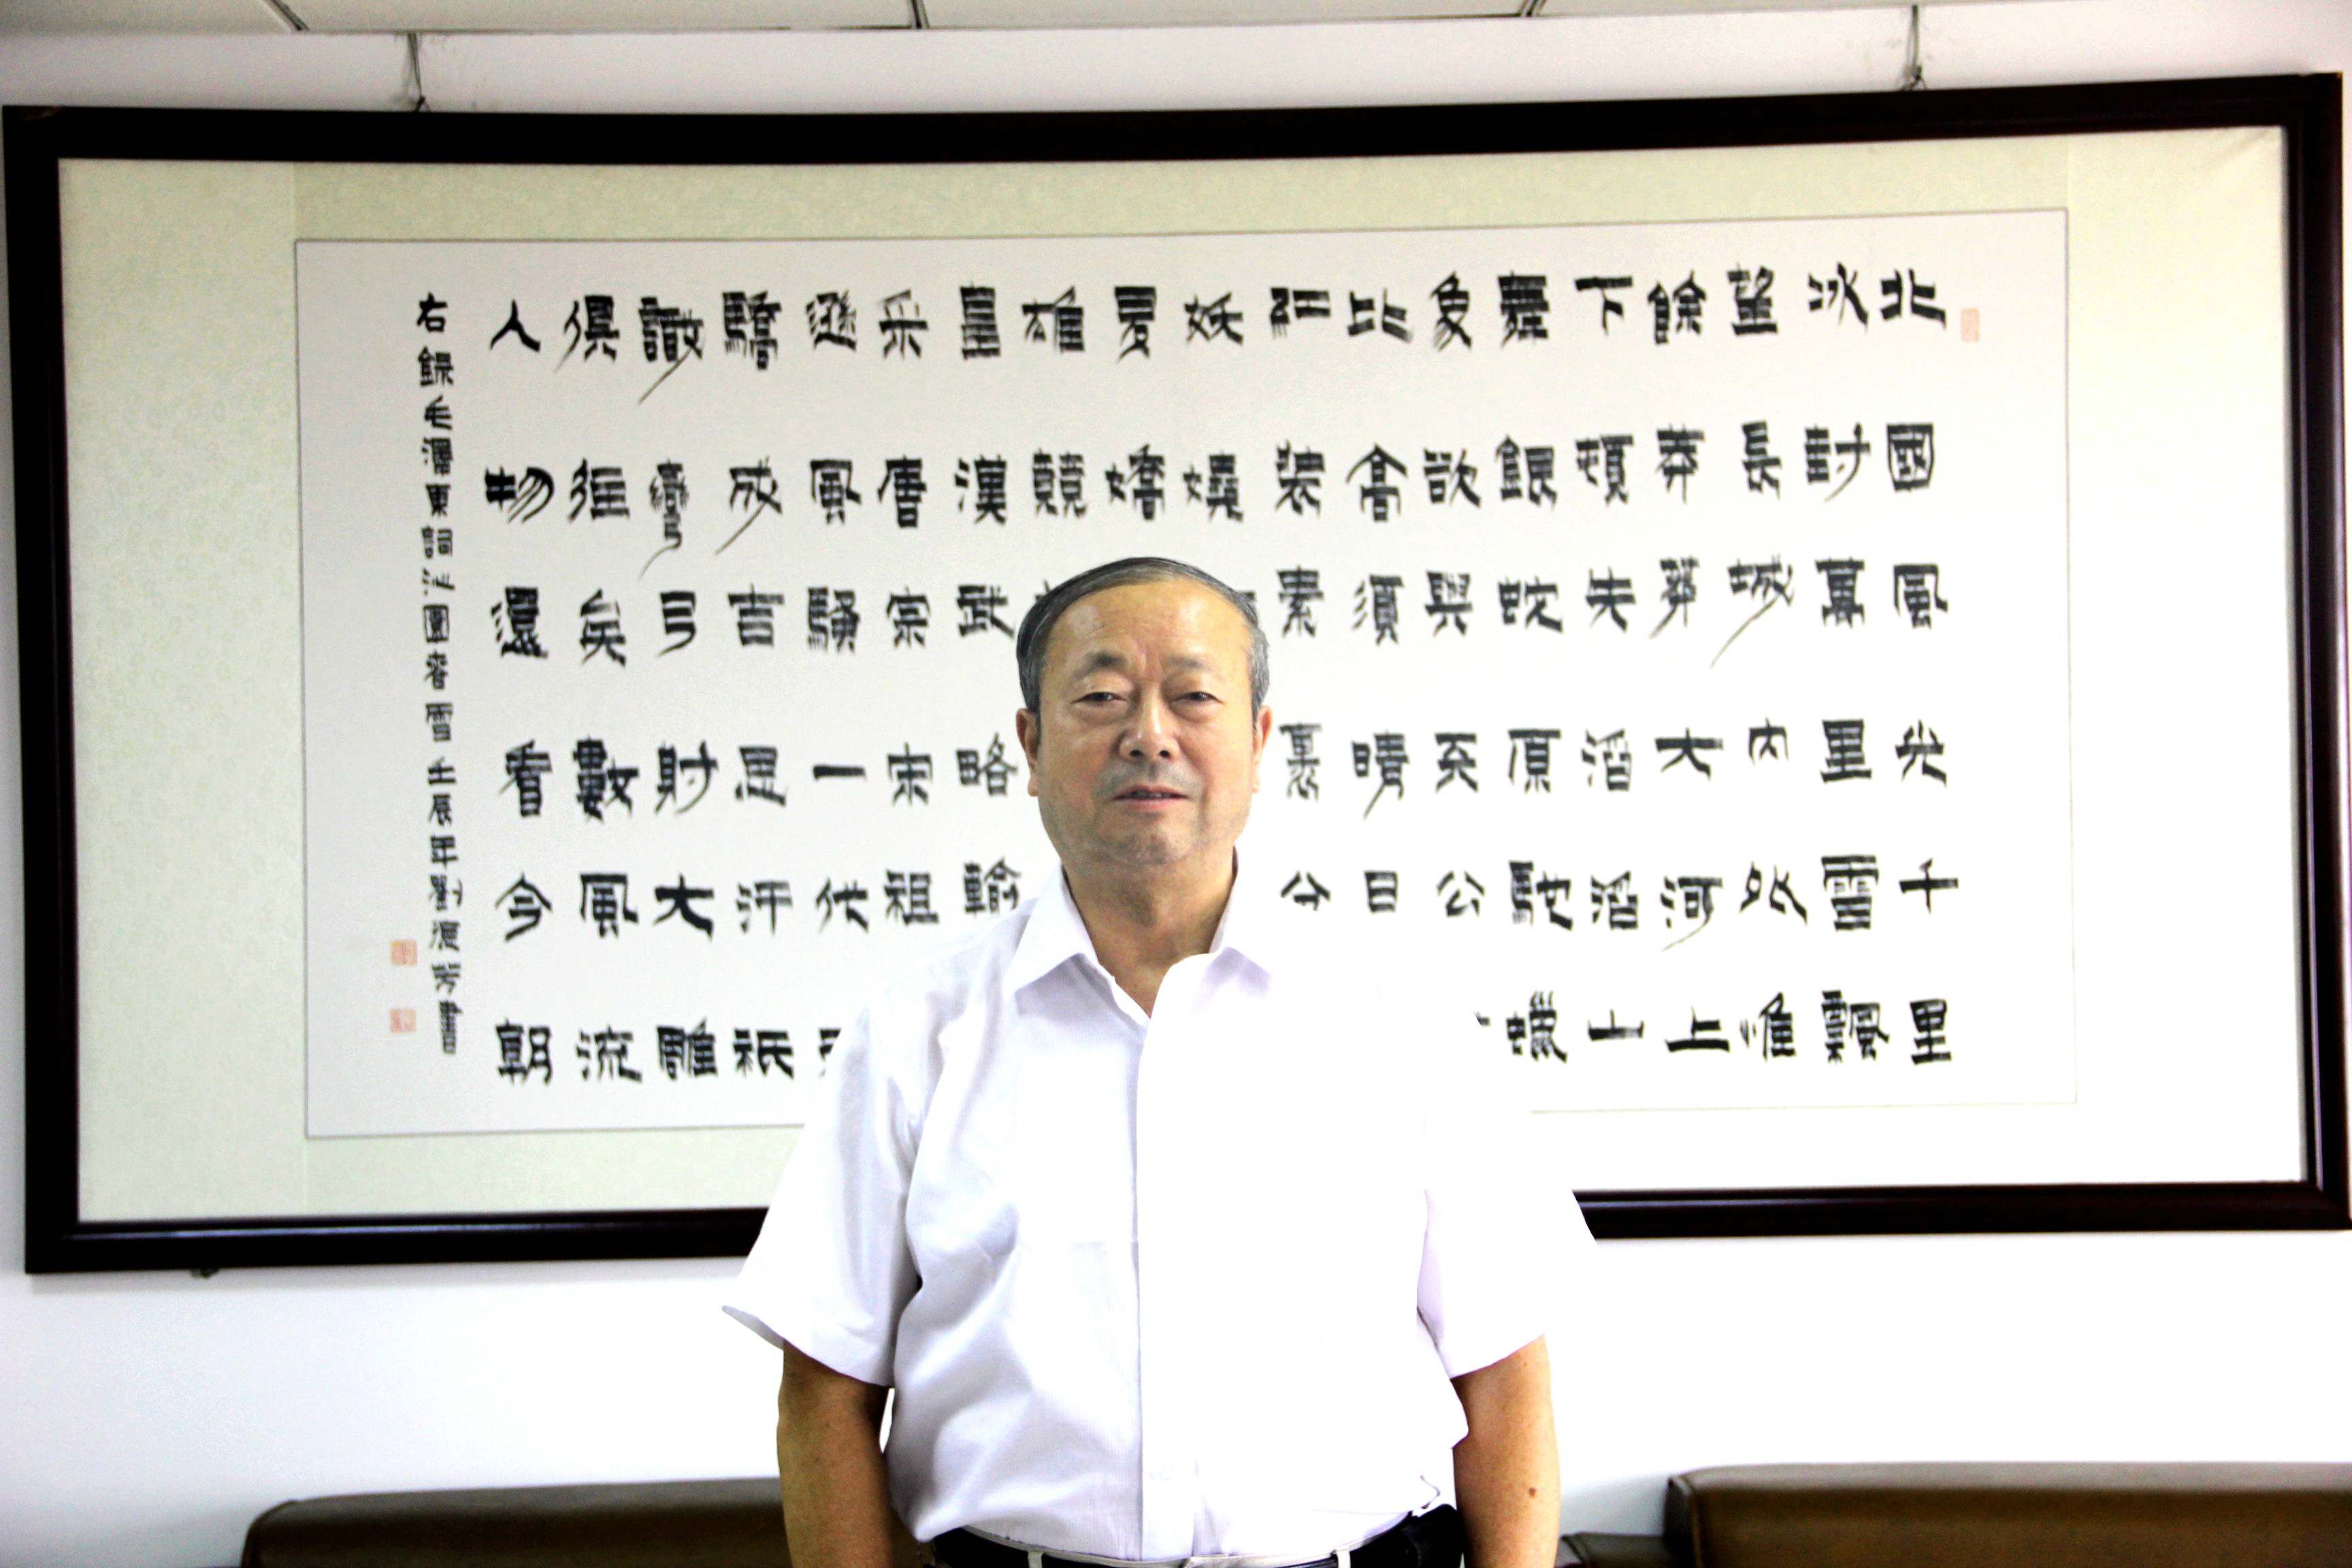 北國風光千里
冰封萬里雪飄
望長城内外惟
餘莽莽大河上
下頓失滔滔山
舞銀蛇原馳蠟
象欲與天公
比高須晴日
紅裝素裹分
妖嬈
多嬌
雄競
皇漢武略輸
采唐宗宋祖
遜風騷一代
驕成吉思汗祇
識彎弓射大雕
俱往矣數風流
人物還看今朝
右錄毛澤東詞沁園春雪壬辰年劉芳書